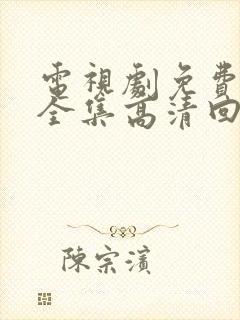 電視劇免費
全集高清回
陳宗濱